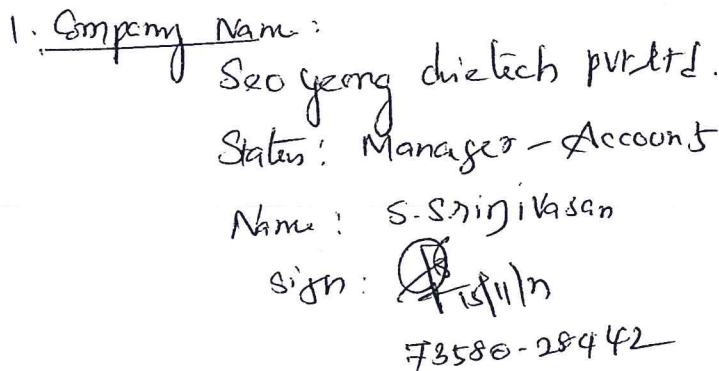 1. Company Name:
Seo yeong dietech pvt ltd.
Status: Manager - Accounts
Name: S. Srinivasan
Sign: 15/11/
73580-28442